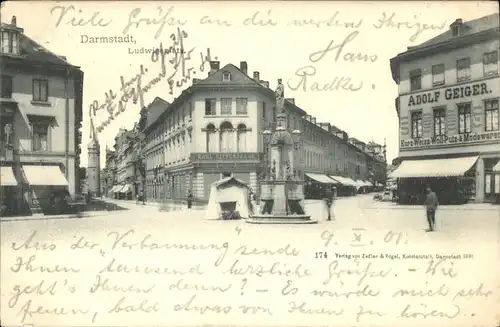 Viele Grüße an die werten Ihrigen
Darmstadt,
Ludwigsplatz.
Hans
Radtke.
ADOLF GEIGER.
Kurz-Weiss-Woll-Putz-& Modewaren
Aus der "Verbannung" sende 9. X. 01.
174 Verlag von Zedler & Vogel, Kunstanstalt, Darmstadt 1901
Ihnen tausend herzliche Grüße. - Wie
geht's Ihnen denn? - Es würde mich sehr
freuen, bald etwas von Ihnen zu hören.